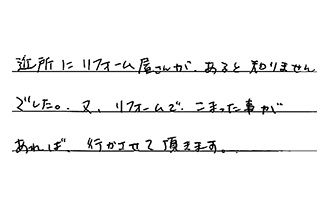 近所にリフォーム屋さんが、あると知りません
でした。又、リフォームで、こまった事が
あれば、行かせて頂きます。